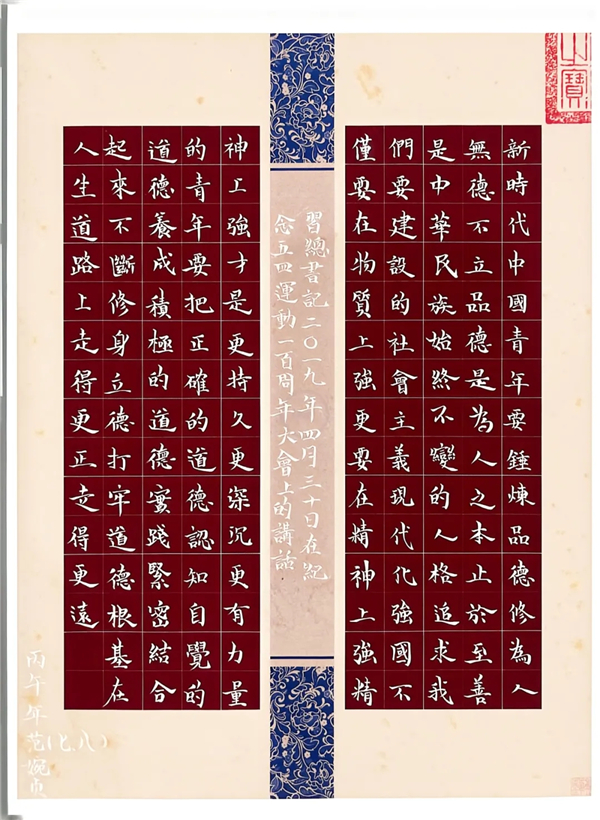 新時代中國青年要錘煉品德修為人
無德不立品德是為人之本止於至善
是中華民族始終不變的人格追求我
們要建設的社會主義現代化強國不
僅要在物質上強更要在精神上強精
習總書記二〇一九年四月三十日在紀
念五四運動一百周年大會上的講話
神上強才是更持久更深沉更有力量
的青年要把正確的道德認知自覺的
道德養成積極的道德實踐緊密結合
起來不斷修身立德打牢道德根基在
人生道路上走得更正走得更遠
丙午年范婉貞
(七.八)
寶